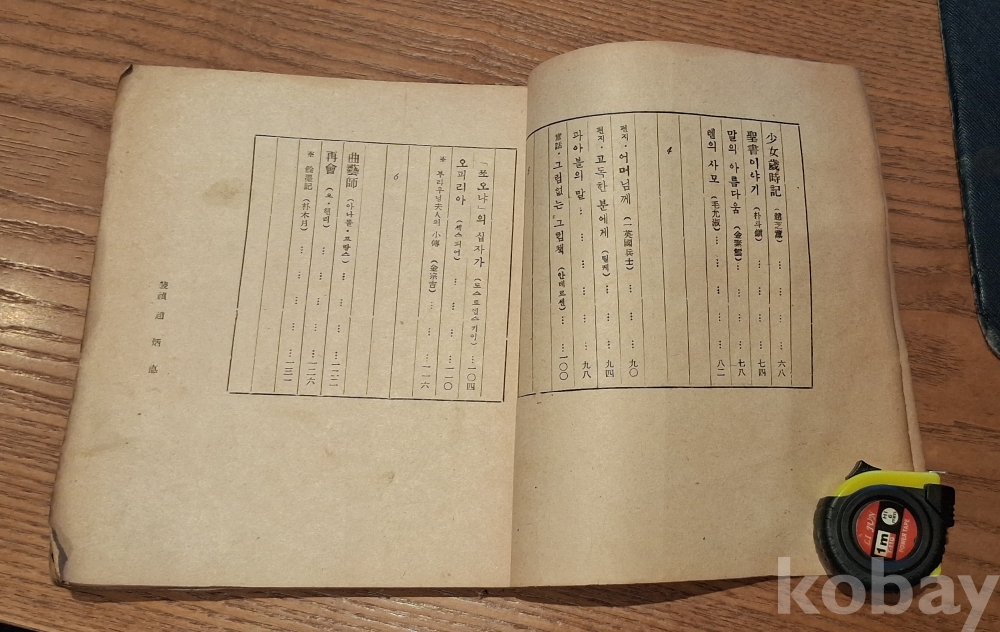 少女歲時記 (趙芝薰) … … … 六八
聖書이야기 (朴斗鎭) … … … 七四
말의 아름다움 … … … 七八
렌의 사모 (毛允淑) … … … 八二
4
편지・어머님께 (一英國兵士) … … 九〇
편지・고독한 분에게 (릴케) … … … 九四
파아불의 말 … … … … 九八
童話・그림없는 그림책 (안데르센) … … 一〇〇
5
「쏘오냐」의 십자가 (도스토엡스키이) … 一〇四
오피리아 (쎅스피어) … … … 一一〇
※ 부라우닝夫人의 小傳 (金宗吉) … … 一一六
6
曲藝師 (아나톨・프랑스) … … … 一二一
再會 (오・헨리) … … … 一二六
※ 餘墨記 (朴木月) … … … 一三一
裝幀 趙炳悳
LI JUN
1m
kobay